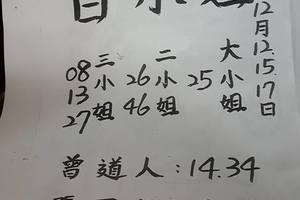 12月12.15.17日
大小姐 25
二小姐 26 46
三小姐 08 13 27
曾道人：14.34